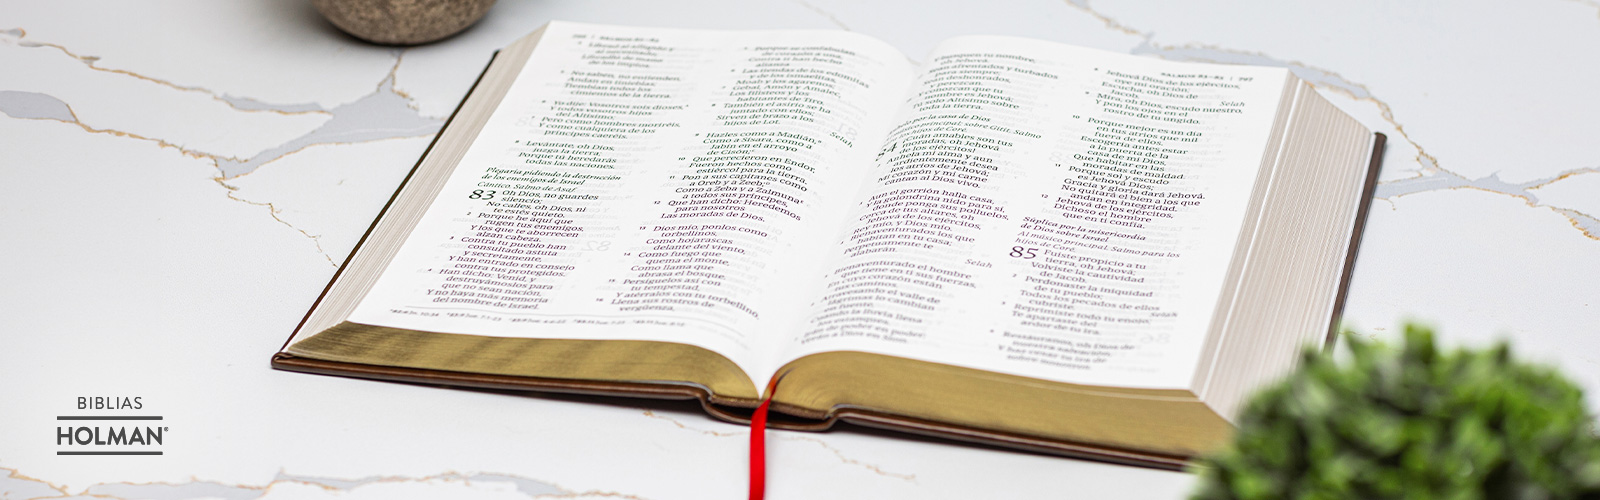 SALMOS 82–83
Librad al afligido y
al necesitado;
Libradlo de mano
de los impíos.
No saben, no entienden,
Andan en tinieblas;
Tiemblan todos los
cimientos de la tierra.
Yo dije: Vosotros sois dioses,
Y todos vosotros hijos
del Altísimo;
Pero como hombres moriréis,
Y como cualquiera de los
príncipes caeréis.
Levántate, oh Dios,
juzga la tierra;
Porque tú heredarás
todas las naciones.
Plegaria pidiendo la destrucción
de los enemigos de Israel
Cántico. Salmo de Asaf.
83 Oh Dios, no guardes
silencio;
No calles, oh Dios, ni
te estés quieto.
2 Porque he aquí que
rugen tus enemigos,
Y los que te aborrecen
alzan cabeza.
3 Contra tu pueblo han
consultado astuta
y secretamente,
Y han entrado en consejo
contra tus protegidos.
4 Han dicho: Venid, y
destruyámoslos para
que no sean nación,
Y no haya más memoria
del nombre de Israel.
Porque se confabulan
de corazón a una,
Contra ti han hecho
alianza
Las tiendas de los edomitas
y de los ismaelitas,
Moab y los agarenos;
Gebal, Amón y Amalec,
Los filisteos y los
habitantes de Tiro.
También el asirio se ha
juntado con ellos;
Sirven de brazo a los
hijos de Lot.
Selah
9 Hazles como a Madián,
Como a Sísara, como a
Jabín en el arroyo
de Cisón;
10 Que perecieron en Endor,
Fueron hechos como
estiércol para la tierra.
11 Pon a sus capitanes como
a Oreb y a Zeeb;
Como a Zeba y a Zalmuna
a todos sus príncipes,
12 Que han dicho: Heredemos
para nosotros
Las moradas de Dios.
13 Dios mío, ponlos como
torbellinos,
Como hojarascas
delante del viento,
14 Como fuego que
quema el monte,
Como llama que
abrasa el bosque.
15 Persíguelos así con
tu tempestad,
Y atérralos con tu torbellino.
16 Llena sus rostros de
vergüenza,
SALMOS 83–85 | 797
Y busquen tu nombre,
oh Jehová.
Sean afrentados y turbados
para siempre;
Sean deshonrados,
y perezcan.
Y conozcan que tu
nombre es Jehová;
Tú solo Altísimo sobre
toda la tierra.
por la casa de Dios
músico principal; sobre Gitit. Salmo
los hijos de Coré.
84 ¡Cuán amables son tus
moradas, oh Jehová
de los ejércitos!
Anhela mi alma y aun
ardientemente desea
los atrios de Jehová;
Mi corazón y mi carne
cantan al Dios vivo.
Aun el gorrión halla casa,
Y la golondrina nido para sí,
donde ponga sus polluelos,
Cerca de tus altares, oh
Jehová de los ejércitos,
Rey mío, y Dios mío.
Bienaventurados los que
habitan en tu casa;
Perpetuamente te
alabarán.
Selah
Bienaventurado el hombre
que tiene en ti sus fuerzas,
En cuyo corazón están
tus caminos.
Atravesando el valle de
lágrimas lo cambian
en fuente,
Cuando la lluvia llena
los estanques.
Irán de poder en poder;
Verán a Dios en Sion.
Jehová Dios de los ejércitos,
oye mi oración;
Escucha, oh Dios de
Jacob.
Selah
Mira, oh Dios, escudo nuestro,
Y pon los ojos en el
rostro de tu ungido.
10 Porque mejor es un día
en tus atrios que mil
fuera de ellos.
Escogería antes estar
a la puerta de la
casa de mi Dios,
Que habitar en las
moradas de maldad.
11 Porque sol y escudo
es Jehová Dios;
Gracia y gloria dará Jehová.
No quitará el bien a los que
andan en integridad.
12 Jehová de los ejércitos,
Dichoso el hombre
que en ti confía.
Súplica por la misericordia
de Dios sobre Israel
Al músico principal. Salmo para los
hijos de Coré.
85 Fuiste propicio a tu
tierra, oh Jehová;
Volviste la cautividad
de Jacob.
2 Perdonaste la iniquidad
de tu pueblo;
Todos los pecados de ellos
cubriste.
Selah
3 Reprimiste todo tu enojo;
Te apartaste del
ardor de tu ira.
Restáuranos, oh Dios de
nuestra salvación,
Y haz cesar tu ira de
sobre nosotros.
BIBLIAS
HOLMAN®